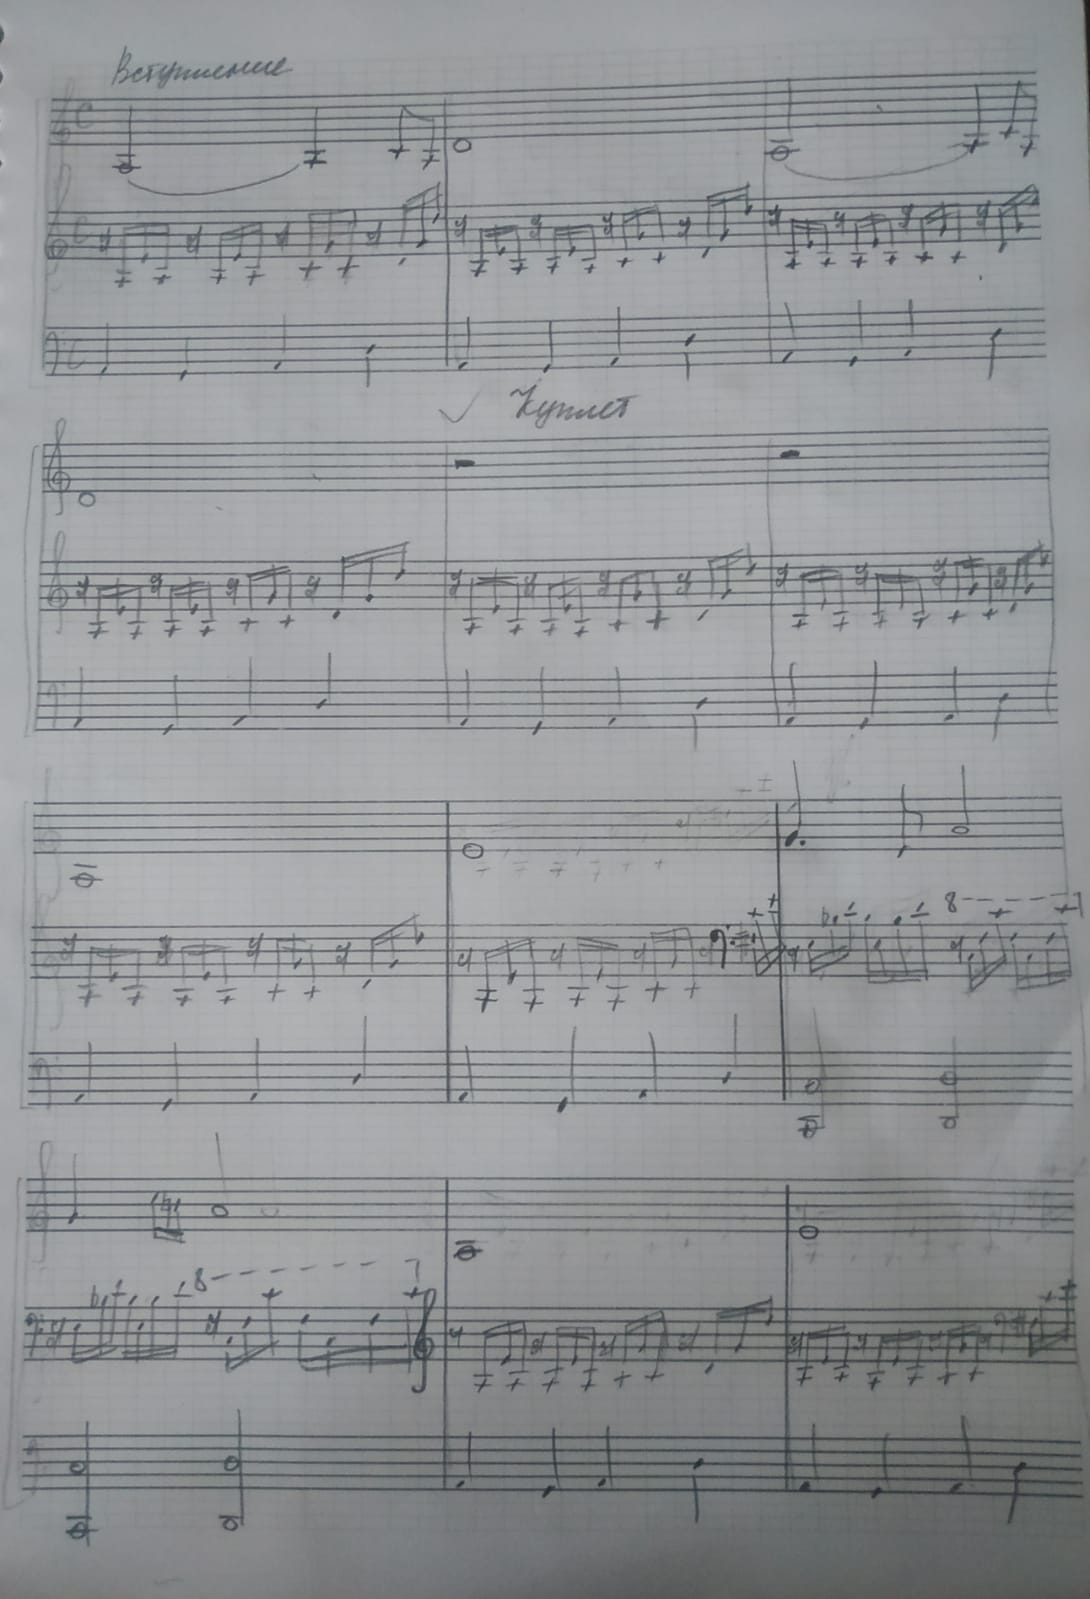 Вступление
Куплет
8
8